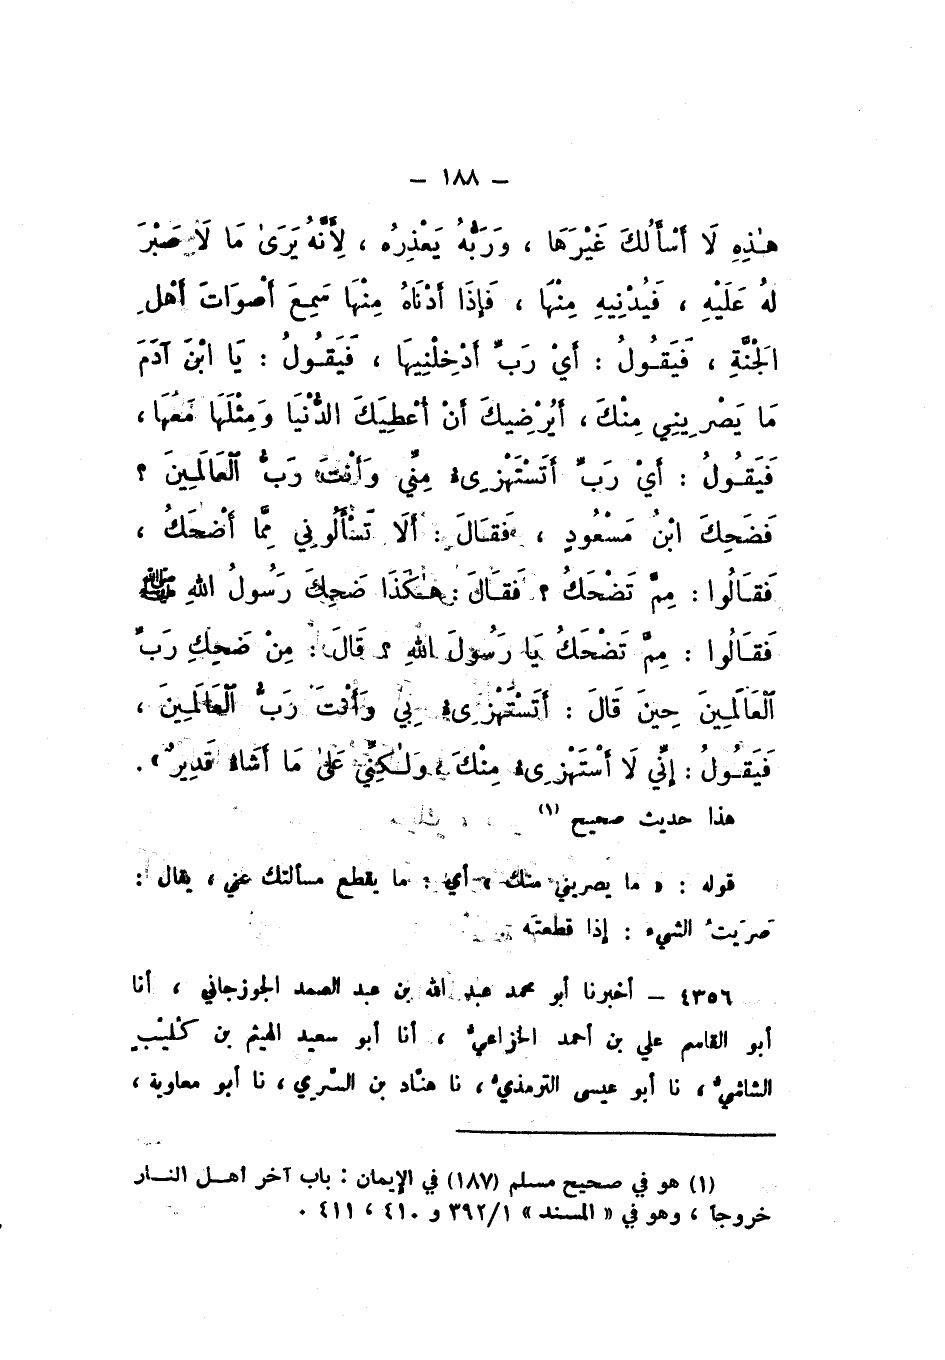 – ١٨٨ –
هٰذِهِ لَا أَسْأَلُكَ غَيْرَهَا ، وَرَبُّهُ يَعْذِرُه ، لِأَنَّهُ يَرَىٰ مَا لَا صَبْرَ
لَهُ عَلَيْهِ ، فَيُدْنِيهِ مِنْهَا ، فَإِذَا أَدْنَاهُ مِنْهَا سَمِعَ أَصْوَاتَ أَهْلِ
الجَنَّةِ ، فَيَقُولُ : أَيْ رَبِّ أَدْخِلْنِيهَا ، فَيَقُولُ : يَا ابْنَ آدَمَ
مَا يَصْرِينِي مِنْكَ ، أَيُرْضِيكَ أَنْ أُعْطِيَكَ الدُّنْيَا وَمِثْلَهَا مَعَهَا ،
فَيَقُولُ : أَيْ رَبِّ أَتَسْتَهْزِىءُ مِنِّي وَأَنْتَ رَبُّ الْعَالَمِينَ ؟
فَضَحِكَ ابْنُ مَسْعُودٍ ، فَقَالَ : أَلَا تَسْأَلُونِي مِمَّا أَضْحَكُ ،
فَقَالُوا : مِمَّ تَضْحَكُ ؟ فَقَالَ : هٰكَذَا ضَحِكَ رَسُولُ اللهِ ﷺ
فَقَالُوا : مِمَّ تَضْحَكُ يَا رَسُولَ اللهِ ؟ قَالَ : مِنْ ضَحِكِ رَبِّ
الْعَالَمِينَ حِينَ قَالَ : أَتَسْتَهْزِىءُ بِي وَأَنْتَ رَبُّ الْعَالَمِينَ ،
فَيَقُولُ : إِنِّي لَا أَسْتَهْزِىءُ مِنْكَ ، وَلٰكِنِّي عَلَىٰ مَا أَشَاءُ قَدِيرٌ » .
هذا حديث صحيح (١)
قوله : « ما يصريني منك » أي : ما يقطع مسألتك عني ، يقال :
صَرَيتُ الشيء : إذا قطعتَه
٤٣٥٦ – أخبرنا أبو محمد عبد الله بن عبد الصمد الجوزجاني ، أنا
أبو القاسم علي بن أحمد الخزاعيُّ ، أنا أبو سعيد الهيثم بن كُلَيْبٍ
الشاشيُّ ، نا أبو عيسى الترمذيُّ ، نا هنّاد بن السَّرِي ، نا أبو معاوية ،
(١) هو في صحيح مسلم (١٨٧) في الإيمان : باب آخر أهل النار
خروجاً ، وهو في « المسند » ٣٩٢/١ و ٤١٠ ، ٤١١ .